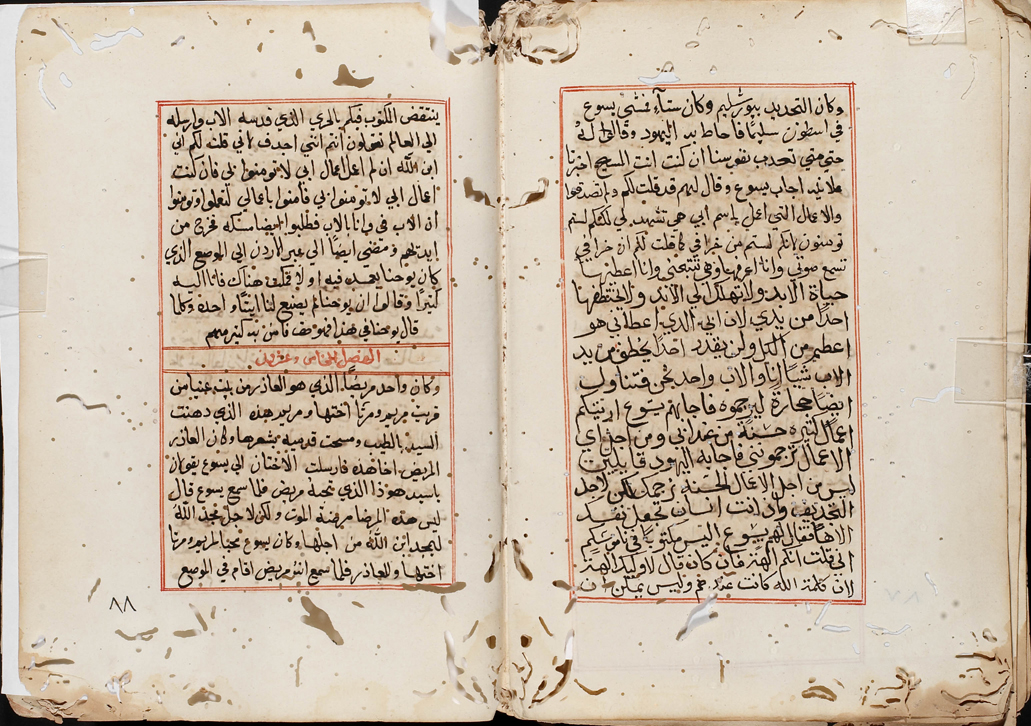 وكان التجديد بيورشليم وكان ستآء فمشي يسوع
في اسطون سليمٰا فاحاط به اليهود وقالوا له
حتي متي تعذب نفوسنا ان كنت انت المسيح اخبرنا
علانيه اجاب يسوع وقال لهم قد قلت لكم ولم تصدقوا
والاعمال التي اعمل باسم ابي هي تشهد لي لكنكم لستم
تومنون لانكم لستم من خرافي كما قلت لكم ان خرافي
تسمع صوتي وانا اعرفها وهي تتبعني وانا اعطيها
حياة الابد ولا تهلك الى الابد ولا يختطفها
احدًا من يدي لان ابي الذي اعطاني هو
اعظم من الكل ولن يقدر احدًا يخطف من يد
الاب شيًا انا والاب واحد نحن فتناولوا
ايضًا حجارةً ليرجموه فاجابهم يسوع اريتكم
اعمال كثيره حسنة من عند ابي ومن اجل اي
الاعمال ترجموني فاجابه اليهود قايلين
ليس من اجل الاعمال الحسنه نرجمك لكن لاجل
التجديف واذ انت انسان تجعل نفسك
الاهًا فقال لهم يسوع اليس مكتوبًا في ناموسكم
اني قلت انكم الهة فان كان قال لاوليك الهة
لان كلمة الله كانت عندهم وليس يمكن ان
ينتقض المكتوب فبكم بالحري الذي قدسه الاب وارسله
الى العالم تقولون انتم انني اجدف لاني قلت لكم اني
ابن الله ان لم اعمل اعمال ابي لا تومنوا بي فان كنت
اعمال ابي لا تومنوا بي فامنوا باعمالي لتعلموا وتومنوا
ان الاب في وانا بالاب فطلبوا ايضا مسكه فخرج من
ايديهم ومضى ايضًا الى عبر الاردن الى الموضع الذي
كان يوحنا يعمد فيه اولا فمكث هناك فاتا اليه
كثيرًا وقالوا ان يوحنا لم يصنع لنا ايتًا واحده وكلما
قال يوحنا في هذا فهو حق فامن به كثير منهم
الفصل الخامس وعشرون
وكان واحد مريضًا الذي هو العاذر من بيت عنيا من
قريت مريم ومرتا اختها ومريم هذه الذي دهنت
السيد بالطيب ومسحت قدميه بشعرها وكان العاذر
المريض اخا هذه فارسلت الاختان الى يسوع يقولان
يا سيد هوذا الذي تحبه مريض فلما سمع يسوع قال
ليس هذه المرضا مرضة الموت ولكن لاجل مجد الله
ليمجد ابن الله من اجلها وكان يسوع محبا لمريم ومرتا
اختها وللعاذر فلما سمع انه مريض اقام في الموضع
٨٨